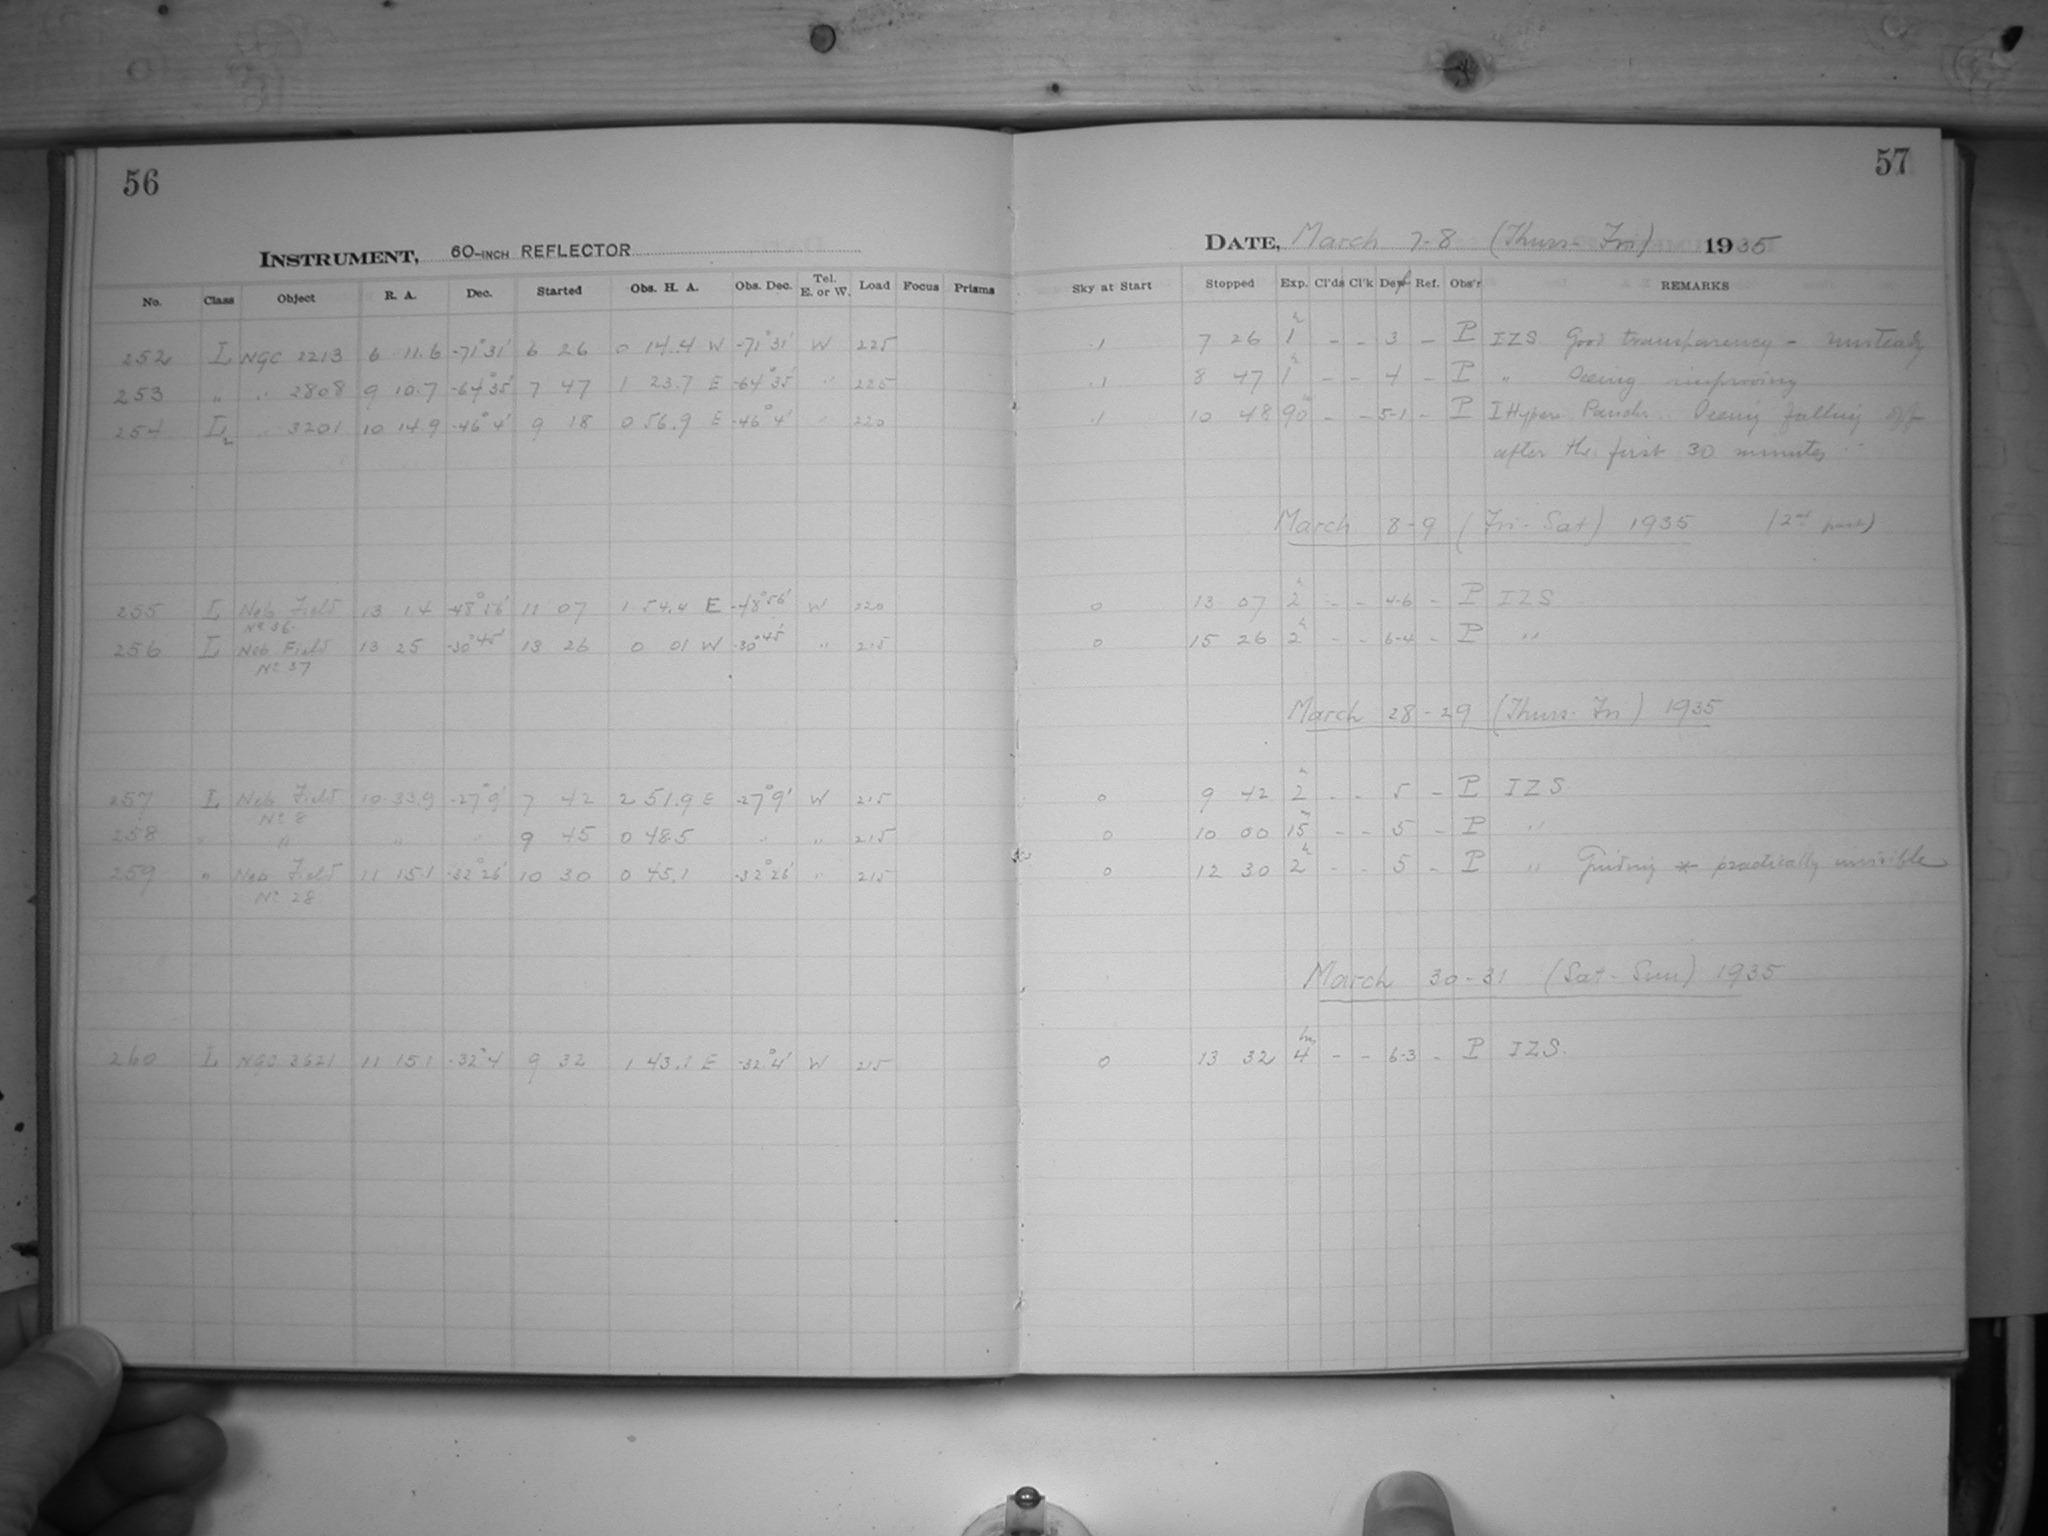 56
INSTRUMENT, 60-INCH REFLECTOR
No. Class Object R. A. Dec. Started Obs. H. A. Obs. Dec. Tel. E. or W. Load Focus Prisms
252 L NGC 2213 6 11.6 -71°31' 6 26 0 14.4 W -71°31' W 225
253 " " 2808 9 10.7 -64°35' 7 47 1 23.7 E -64°35' " 225
254 L2 " 3201 10 14.9 -46°4' 9 18 0 56.9 E -46°4' " 220
255 L Neb Field 13 1.4 -48°56' 11 07 1 54.4 E -48°56' W 220
No 36
256 L Neb Field 13 25 -30°45' 13 26 0 01 W -30°45' " 215
No 37
257 L Neb Field 10 33.9 -27°9' 7 42 2 51.9 E -27°9' W 215
No 8
258 " " " " 9 45 0 48.5 " " 215
259 " Neb Field 11 15.1 -32°26' 10 30 0 45.1 -32°26' " 215
No 28
260 L NGC 3621 11 15.1 -32°4 9 32 1 43.1 E -32°4' W 215
57
DATE, March 7-8 (Thurs-Fri) 1935
Sky at Start Stopped Exp. Cl'ds Cl'k Def Ref. Obs'r REMARKS
.1 7 26 1h - - 3 - P IZS Good transparency - unsteady
.1 8 47 1h - - 4 - P " Seeing improving
.1 10 48 90m - - 5-1 - P I Hypers Panchr. Seeing falling off
after the first 30 minutes
March 8-9 (Fri-Sat) 1935 (2nd part)
0 13 07 2h - - 4-6 - P IZS
0 15 26 2h - - 6-4 - P "
March 28-29 (Thurs-Fri) 1935
0 9 42 2h - - 5 - P IZS
0 10 00 15m - - 5 - P "
0 12 30 2h - - 5 - P " Guiding * practically invisible
March 30-31 (Sat-Sun) 1935
0 13 32 4hrs - - 6-3 - P IZS.